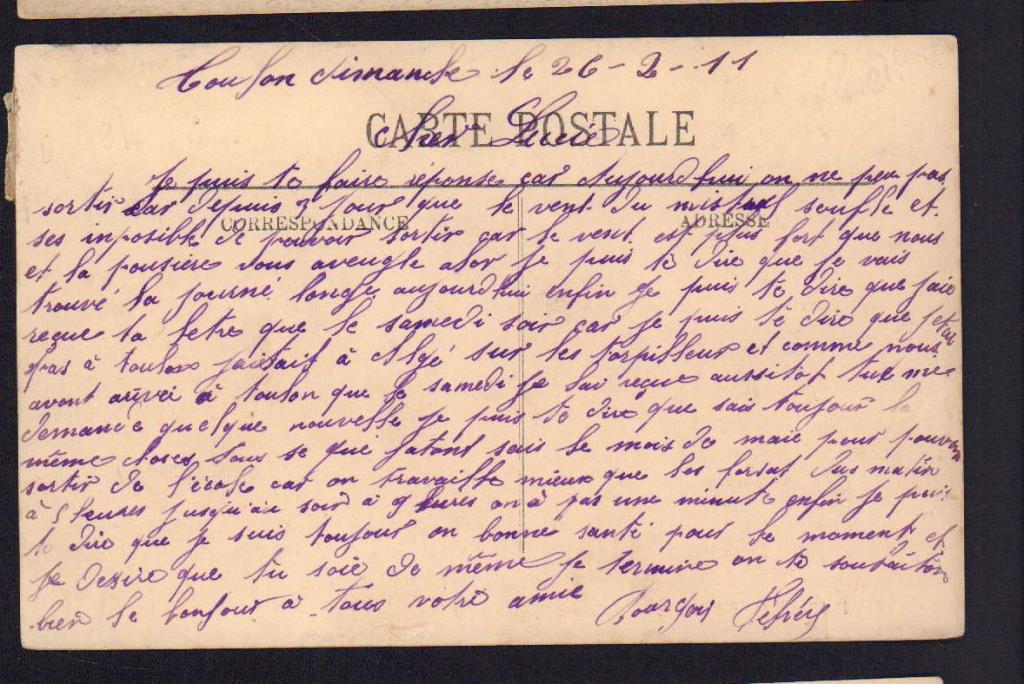 Toulon dimanche le 26-2-11
CARTE POSTALE
Cher Lucie
Je puis te faire réponse car Aujourd'hui on ne peu pas
sortir car depuis 3 jour que le vent du mistral soufle et
CORRESPONDANCE
ADRESSE
ses inposible de pouvoir sortir car le vent est plus fort que nous
et la pousière vous aveugle alor je puis te dire que je vais
trouvé la journé longe aujourdhui enfin je puis te dire que jaie
reçue ta letre que le samedi soir car je puis te dire que jetai
pas à toulon jaitait à Algé sur les torpilleur et comme nous
avont arivé à toulon que le samedi je lai reçue aussitot tu me
demande quelque nouvelle je puis te dire que sais toujour la
même choses tous se que jatent sais le mois de maie pour pouvoir
sortir de l'école car on travaille mieux que les forsat dus matin
à 5 heures jusqu'au soir à 9 hures on à pas une minute enfin je puis
te dire que je suis toujour en bonne santé pour le moment et
je dessire que tu soie de même je termine en te souhaiton
bien le bonjour à tous votre amie
Bourgois